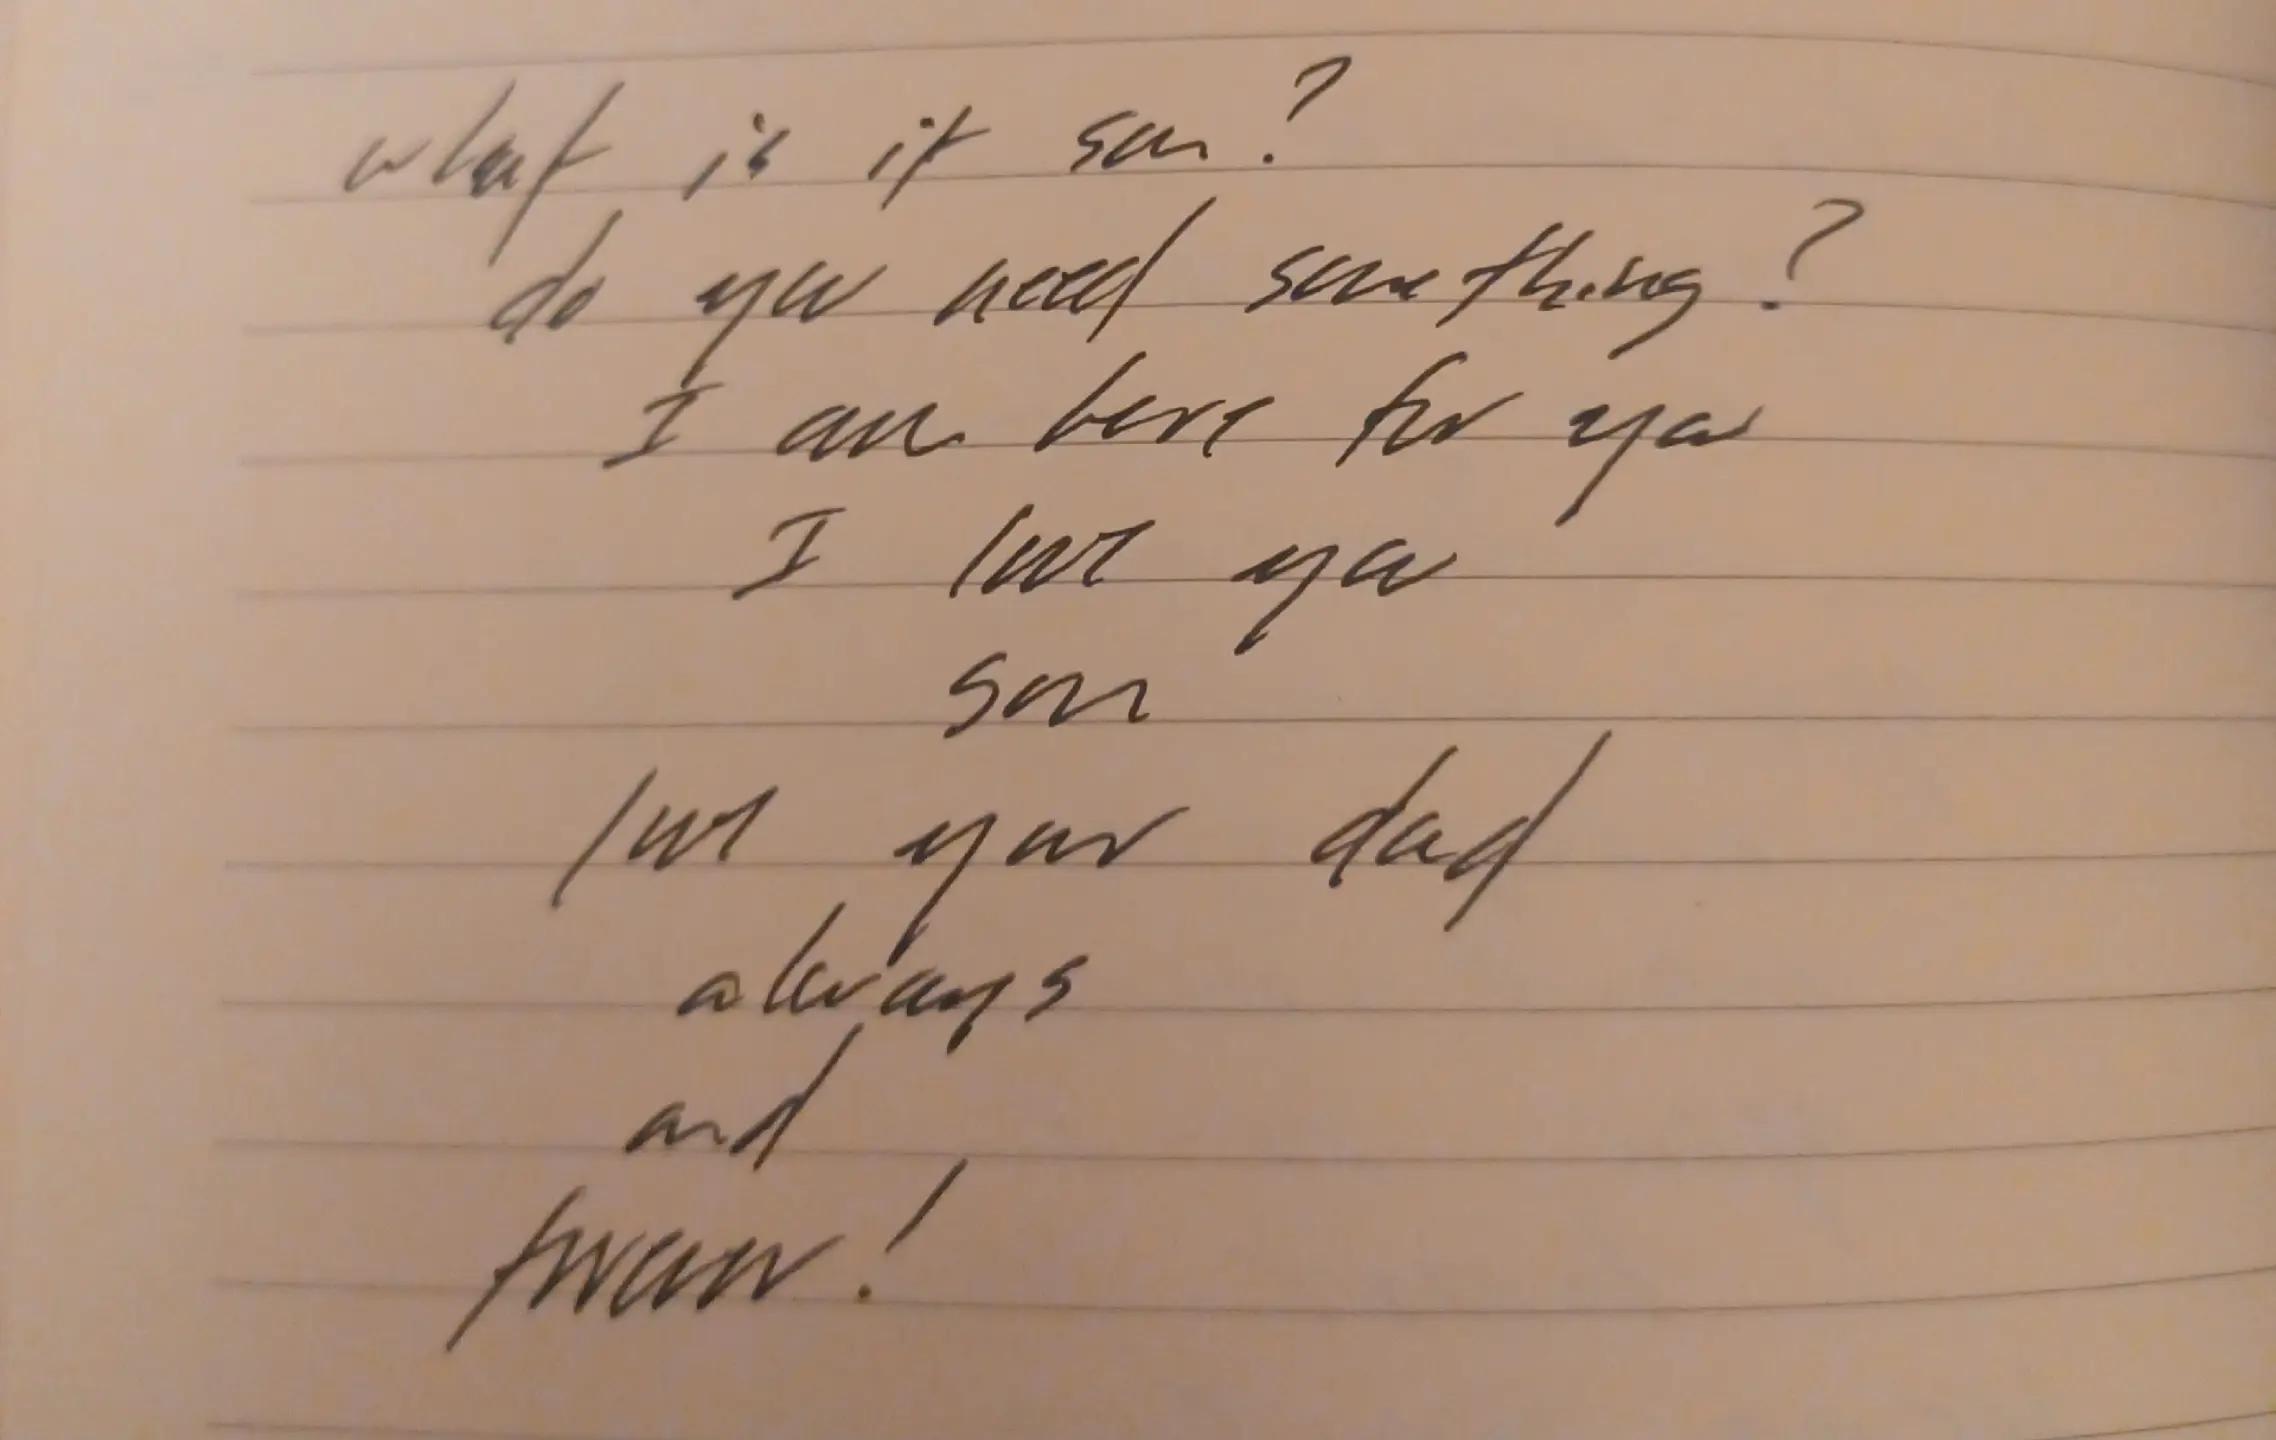 what is it son?
do you need something?
I am here for you
I love you
son
love your dad
always
and
forever!